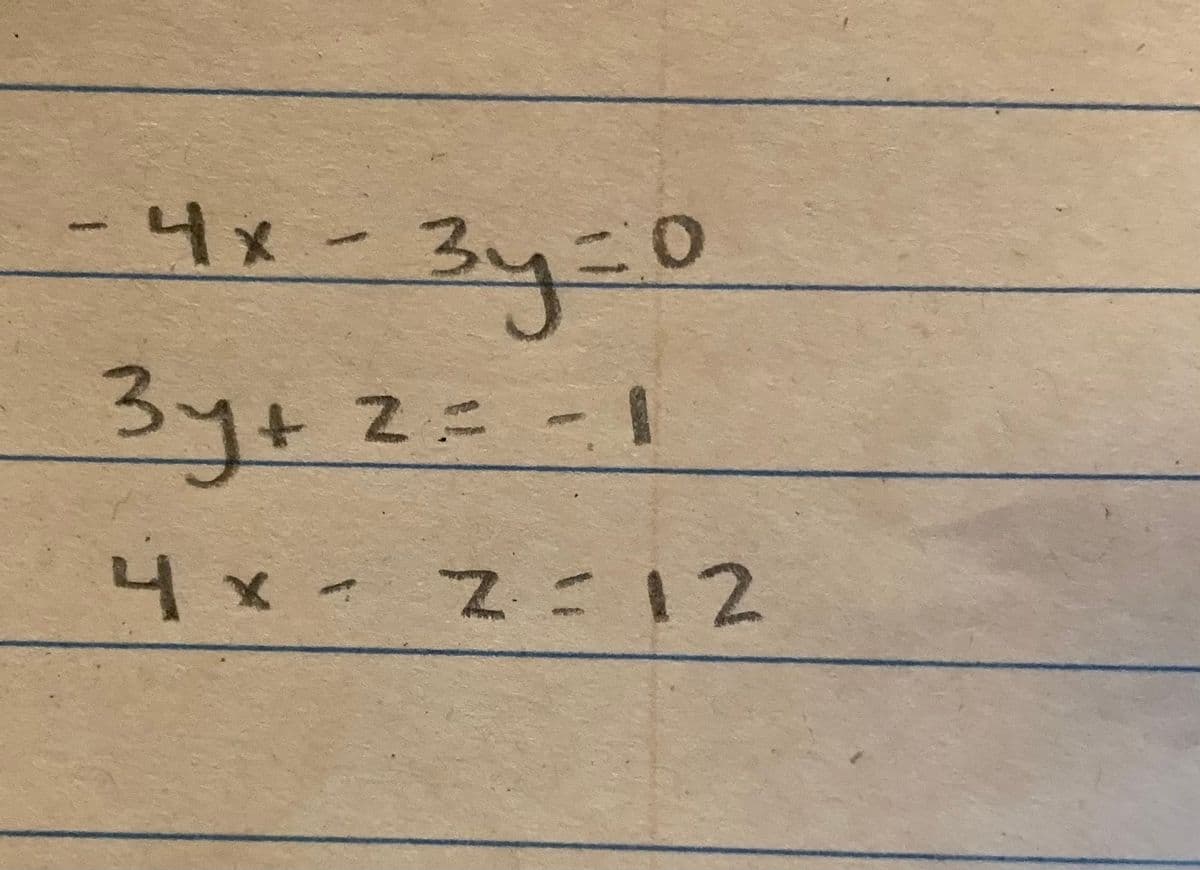 -4x - 3y=0
3y+ z = -1
4x - z = 12